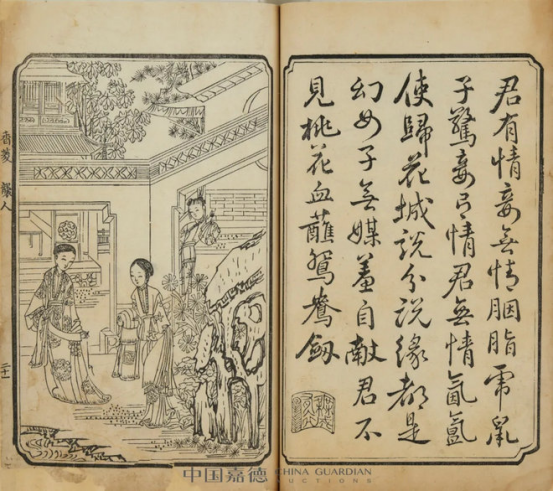 君有情妾無情胭脂虎鼠
子驚妾有情君無情氤氳
使歸花城說分說緣都是
幻女子無媒羞自献君不
見桃花血蘸鴛鴦劍
香菱 襲人
中国嘉德 CHINA GUARDIAN
AUCTIONS